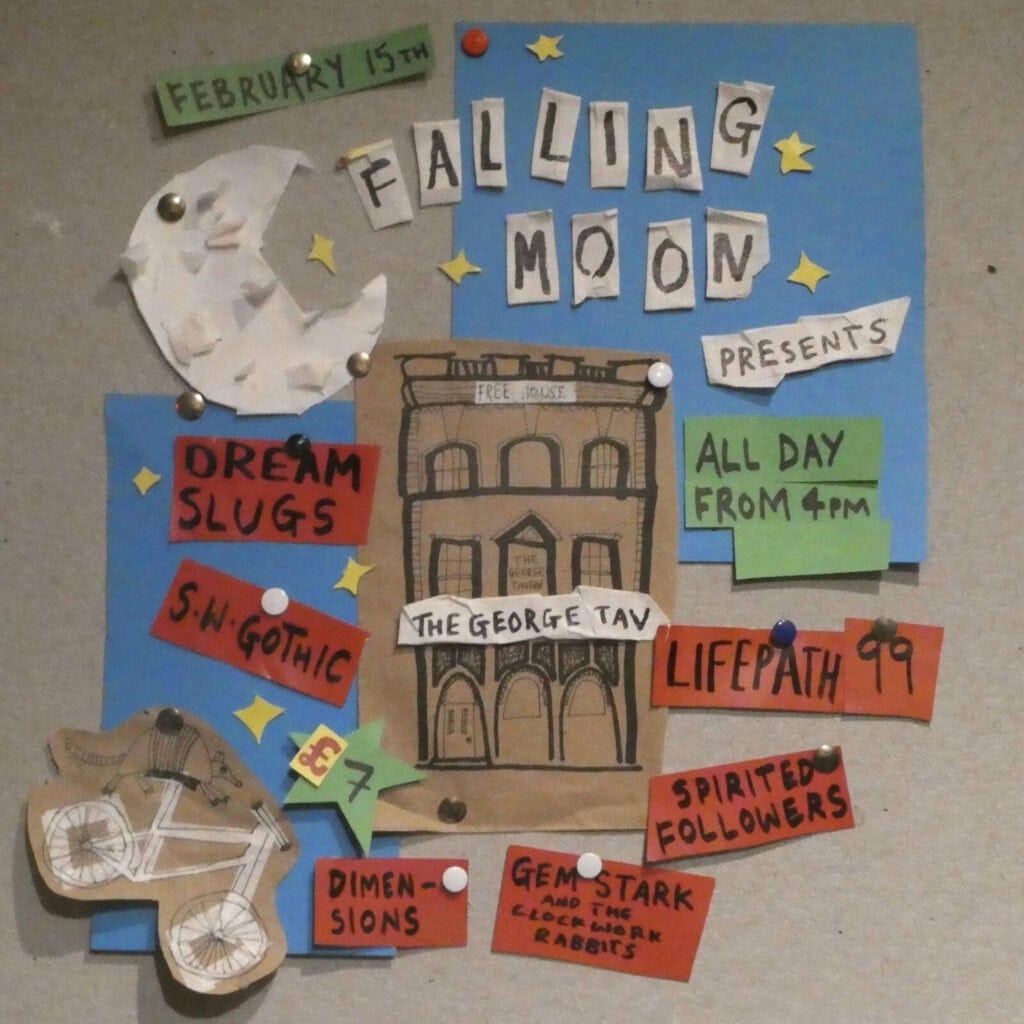 FEBRUARY 15TH
FALLING
MOON
PRESENTS
FREE HOUSE
ALL DAY
FROM 4PM
DREAM
SLUGS
S.W. GOTHIC
THE
GEORGE
TAVERN
THE GEORGE TAV
LIFEPATH 99
£7
SPIRITED
FOLLOWERS
DIMEN-
SIONS
GEM STARK
AND THE
CLOCKWORK
RABBITS